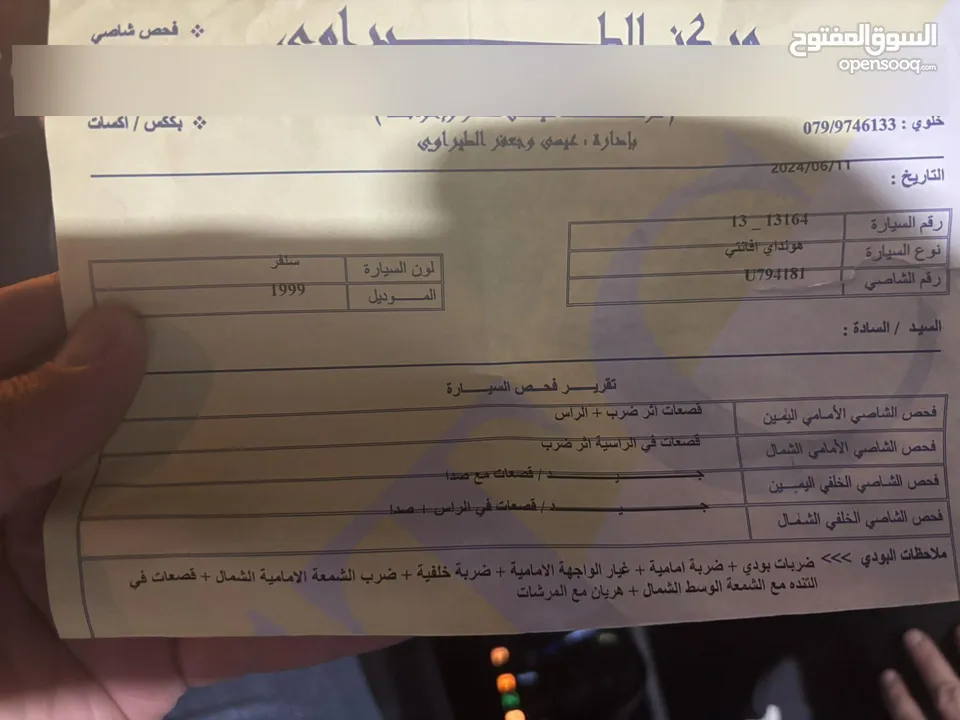 السوق المفتوح
opensooq.com
❖ فحص شاصي
مركز الطيراوي
❖ بككس / اكسات
خلوي : 079/9746133
بإدارة : عيسى وجعفر الطيراوي
التاريخ : 2024/06/11
رقم السيارة 13164 _ 13
نوع السيارة هونداي افانتي
رقم الشاصي U794181
لون السيارة سلفر
الموديل 1999
السيد / السادة :
تقرير فحص السيارة
فحص الشاصي الأمامي اليمين قصعات اثر ضرب + الراس
فحص الشاصي الأمامي الشمال قصعات في الراسية اثر ضرب
فحص الشاصي الخلفي اليمين جيد / قصعات مع صدا
فحص الشاصي الخلفي الشمال جيد / قصعات في الراس + صدا
ملاحظات البودي >>> ضربات بودي + ضربة امامية + غيار الواجهة الامامية + ضربة خلفية + ضرب الشمعة الامامية الشمال + قصعات في
التنده مع الشمعة الوسط الشمال + هريان مع المرشات